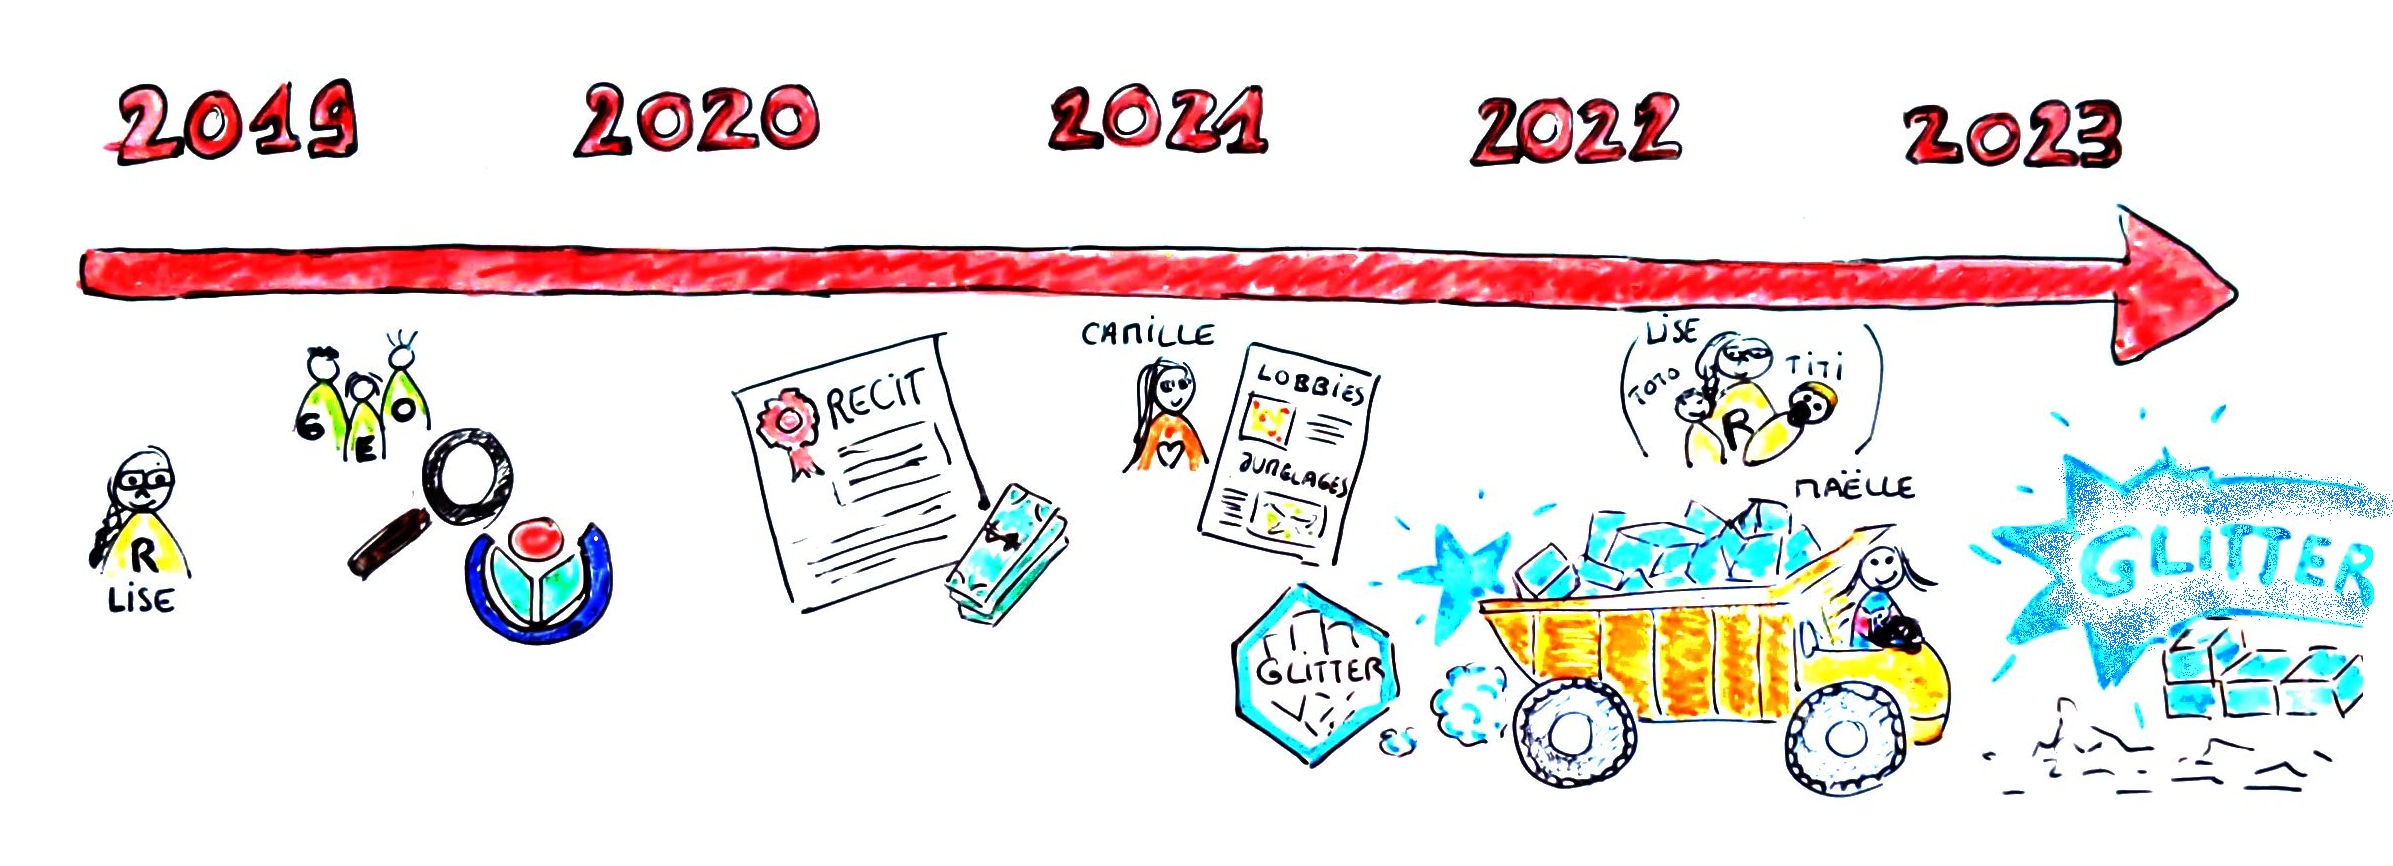 2019 2020 2021 2022 2023
G E O
R
LISE
RECIT
CAMILLE
LOBBIES
JUMELAGES
GLITTER
LISE
TOTO
TITI
R
MAËLLE
GLITTER